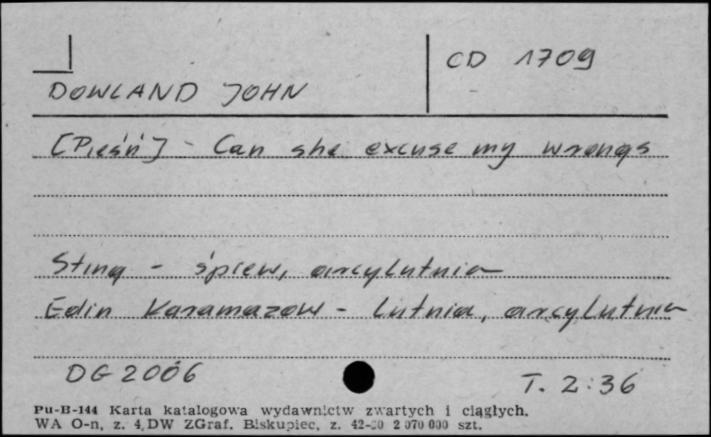 CD 1709
DOWLAND JOHN
[Pieśń] - Can she excuse my wrongs
Sting - śpiew, arcylutnia
Edin Karamazow - lutnia, arcylutnia
DG 2006
T. 2:36
Pu-B-144 Karta katalogowa wydawnictw zwartych i ciągłych.
WA O-n, z. 4, DW ZGraf. Biskupiec, z. 42-20 2 070 000 szt.